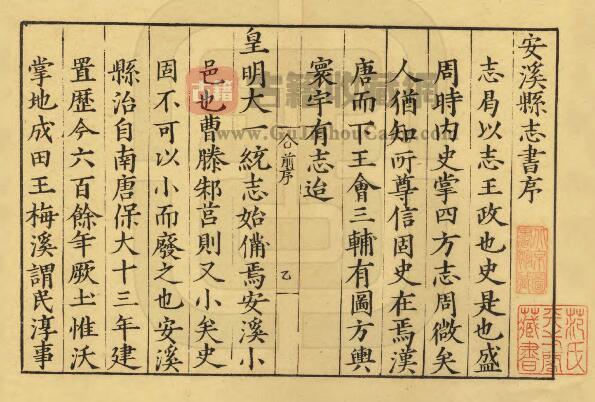 安溪縣志書序
志曷以志王政也史是也盛
周時内史掌四方志周微矣
人猶知所尊信固史在焉漢
唐而下王會三輔有圖方輿
寰宇有志迨
前序
皇明大一統志始備焉安溪小
邑也曹滕邾莒則又小矣史
固不可以小而廢之也安溪
縣治自南唐保大十三年建
置歷今六百餘年厥土惟沃
掌地成田王梅溪謂民淳事
范氏
天一閣
藏書
古籍
古籍收藏網